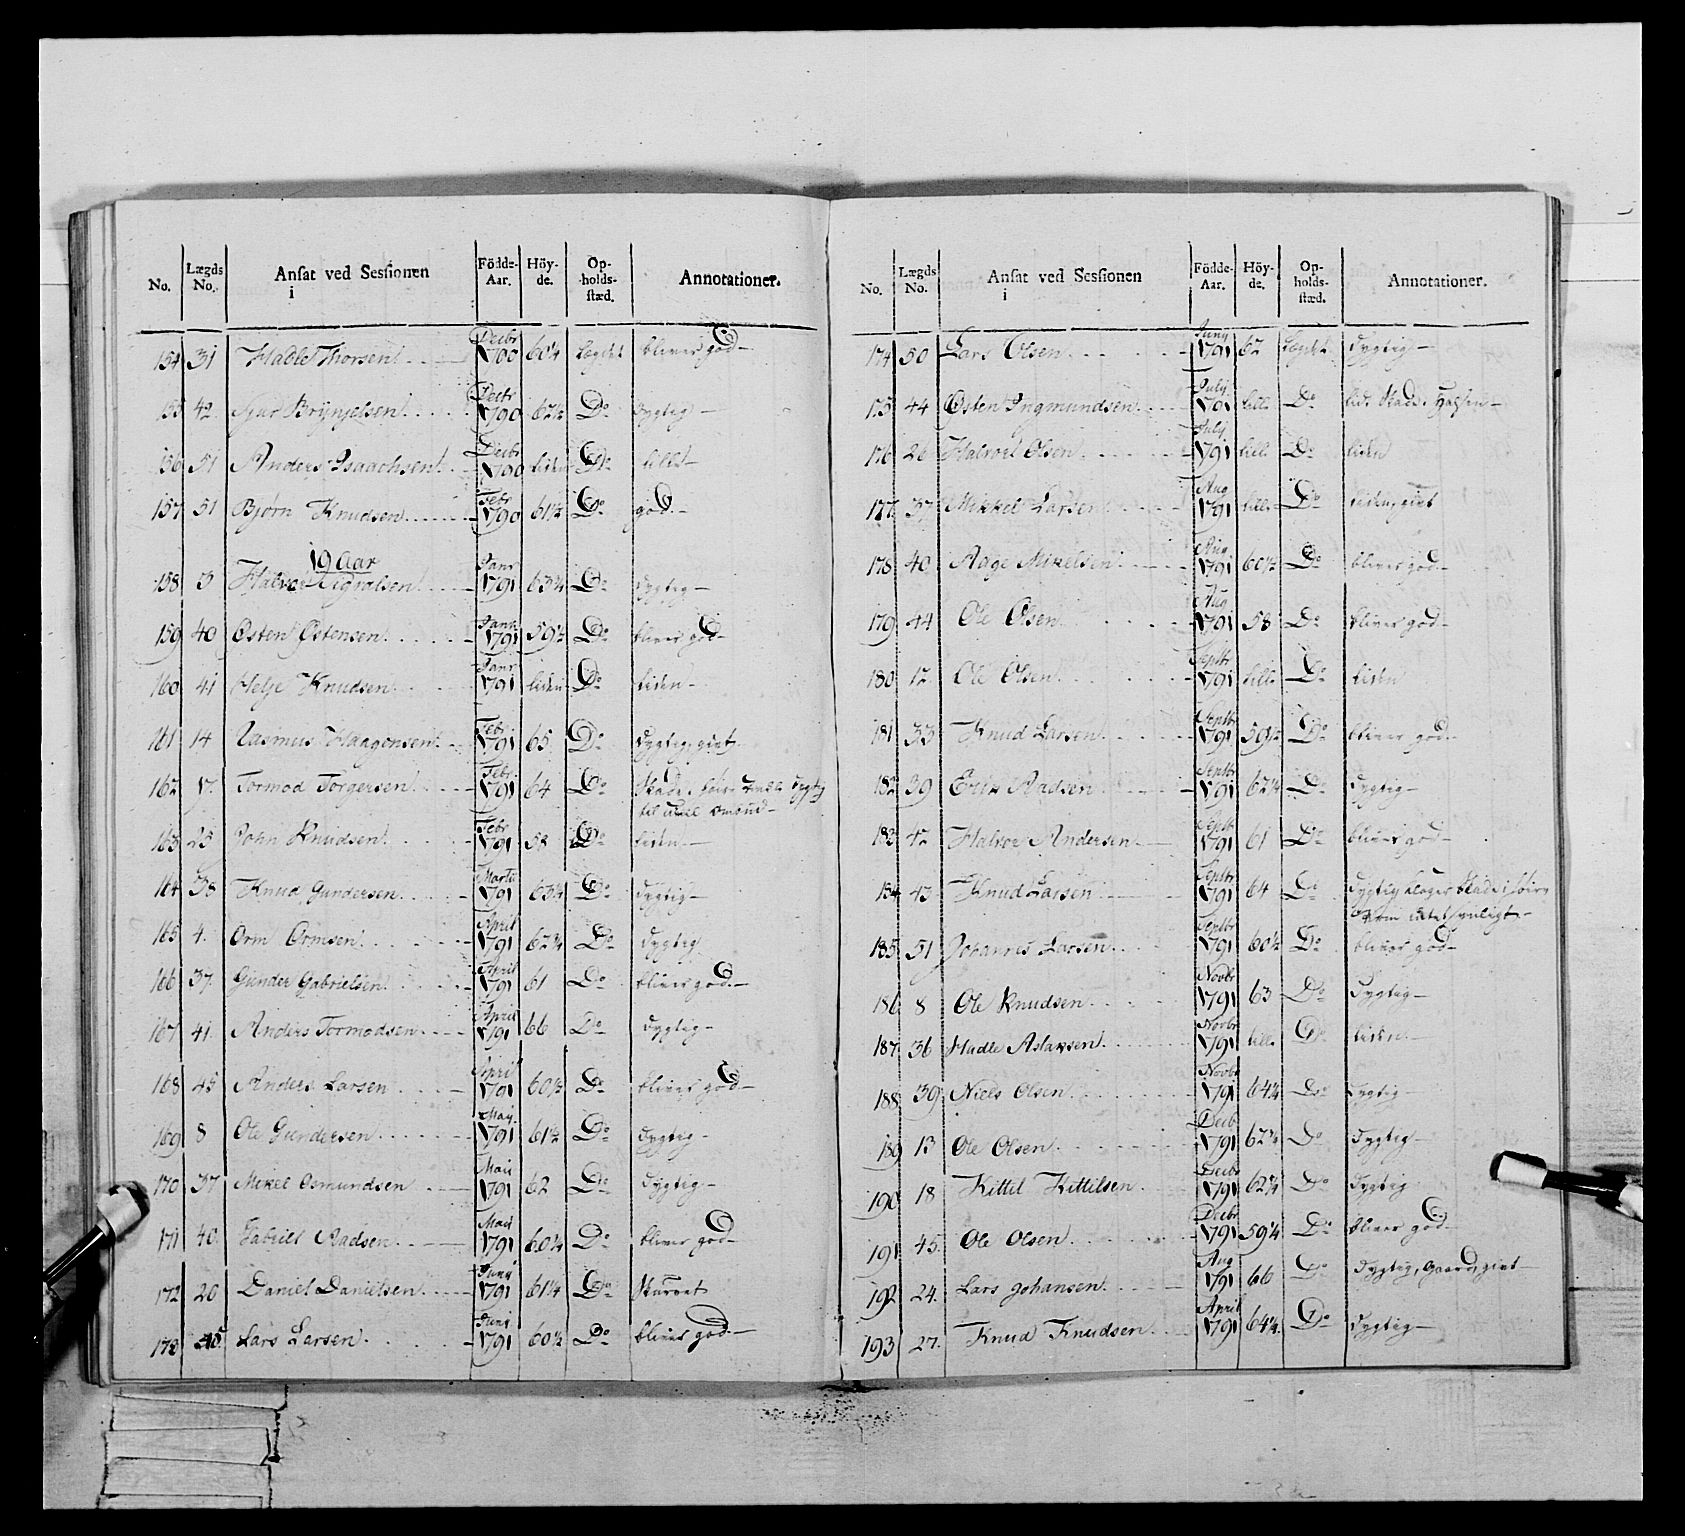 No. Lægds No. Ansat ved Sessionen i Födde- Aar. Höy- de. Op- holds- stæd. Annotationer.
154 31 Hadle Thorsen Decbr 1790 60¼ Lægdet bliver god
155 42 Brynjelsen Decbr 1790 62½ Do dygtig
156 51 Anders Isaachsen Decbr 1790 liden Do
157 51 Bjørn Knudsen Febr 1790 61½ Do god
19 Aar
158 3 Halvor Janr 1791 63¼ Do dygtig
159 40 Østen Østensen Janr 1791 59½ Do bliver god
160 41 Helje Knudsen Janr 1791 liden Do liden
161 14 Rasmus Haagensen Febr 1791 65 Do dygtig, givt
162 17 Tormod Torgersen Febr 1791 64 Do Skade dygtig
til Ombud
163 25 John Knudsen Febr 1791 58 Do liden
164 38 Knud Gundersen Martii 1791 63¼ Do dygtig
165 4 Orm Ormsen April 1791 62¾ Do dygtig
166 37 Gunder Gabrielsen April 1791 61 Do bliver god
167 41 Anders Tormodsen April 1791 66 Do dygtig
168 45 Anders Larsen April 1791 60½ Do bliver god
169 8 Ole Gundersen Maii 1791 61½ Do dygtig
170 37 Mikel Osmundsen Maii 1791 62 Do dygtig
171 40 Gabriel Aadsen Maii 1791 60¼ Do bliver god
172 20 Daniel Danielsen Junij 1791 61¼ Do Skurvet
173 Lars Larsen Junij 1791 60½ Do bliver god
No. Lægds No. Ansat ved Sessionen i Födde- Aar. Höy- de. Op- holds- stæd. Annotationer.
174 50 Lars Olsen Juny 1791 62 Lægdet dygtig
175 44 Østen Ingmundsen July 1791 lille Do
176 26 Halvor Olsen July 1791 lille Do liden
177 37 Mikkel Larsen Aug 1791 lille Do liden, givt
178 40 Aage Mikelsen Aug 1791 60½ Do bliver god
179 44 Ole Olsen Aug 1791 58 Do bliver god
180 12 Ole Olsen Septbr 1791 lille Do liden
181 33 Knud Larsen Septbr 1791 59½ Do bliver god
182 39 Erik Aadsen Septbr 1791 62¼ Do dygtig
183 42 Halvor Andersen Septbr 1791 61 Do bliver god
184 43 Knud Larsen Septbr 1791 64 Do dygtig klager Skade i
som
185 51 Johannes Larsen Septbr 1791 60½ Do bliver god
186 8 Ole Knudsen Novbr 1791 63 Do dygtig
187 36 Hadle Aslaksen Novbr 1791 lille Do liden
188 39 Niels Olsen Novbr 1791 64¼ Do dygtig
189 13 Ole Olsen Decb 1791 62¾ Do dygtig
190 18 Kittil Kittilsen Decbr 1791 62¾ Do dygtig
191 45 Ole Olsen Decbr 1791 59¼ Do bliver god
192 24 Lars Johansen Aug 1791 66 Do dygtig, Gaard, givt
193 27 Knud Knudsen April 1791 64¼ Do dygtig